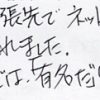 張先でネット
れました。
では、有名だ